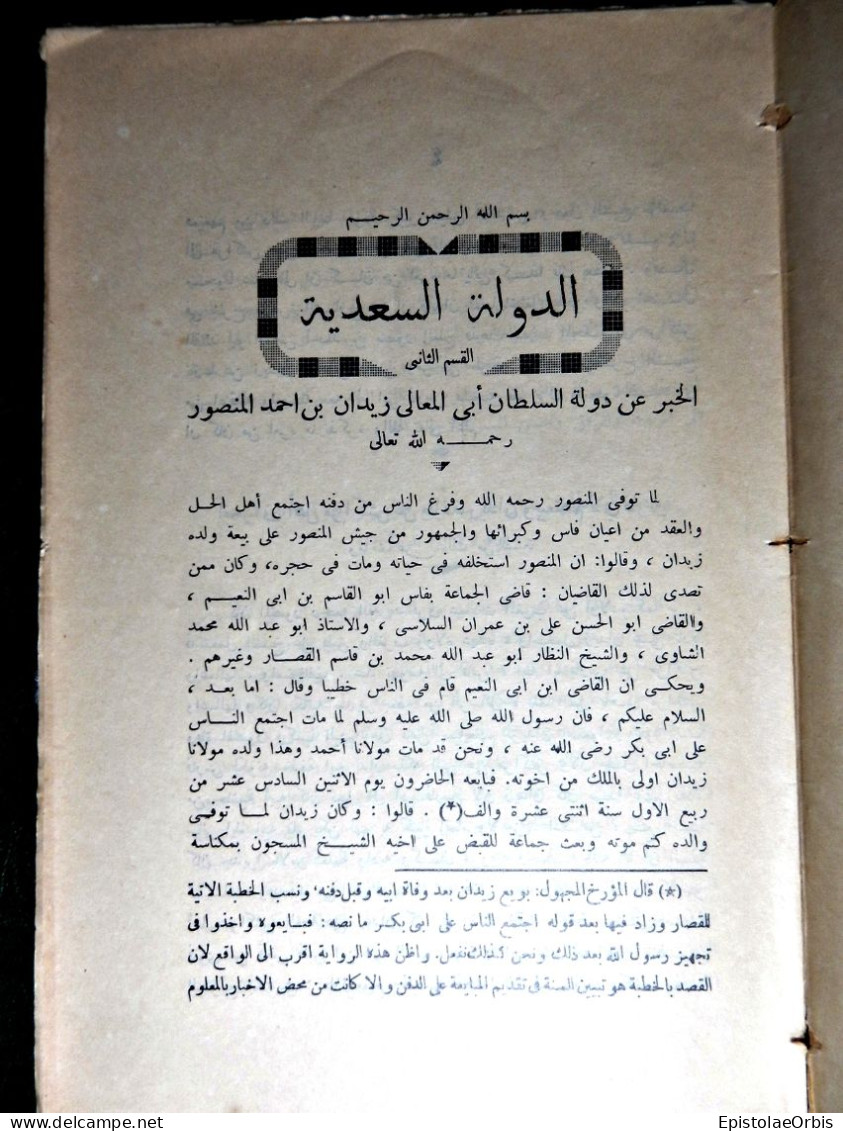 بسم الله الرحمن الرحيم
الدولة السعدية
القسم الثانى
الخبر عن دولة السلطان أبى المعالى زيدان بن احمد المنصور
رحمه الله تعالى
لما توفى المنصور رحمه الله وفرغ الناس من دفنه اجتمع أهل الحل
والعقد من اعيان فاس وكبرائها والجمهور من جيش المنصور على بيعة ولده
زيدان ، وقالوا: ان المنصور استخلفه فى حياته ومات فى حجره، وكان ممن
تصدى لذلك القاضيان : قاضى الجماعة بفاس ابو القاسم بن ابى النعيم ،
والقاضى ابو الحسن على بن عمران السلاسى ، والاستاذ ابو عبد الله محمد
الشاوى ، والشيخ النظار ابو عبد الله محمد بن قاسم القصار وغيرهم .
ويحكى ان القاضى ابن ابى النعيم قام فى الناس خطيبا وقال : اما بعد ،
السلام عليكم ، فان رسول الله صلى الله عليه وسلم لما مات اجتمع الناس
على ابى بكر رضى الله عنه ، ونحن قد مات مولانا أحمد وهذا ولده مولانا
زيدان اولى بالملك من اخوته. فبايعه الحاضرون يوم الاثنين السادس عشر من
ربيع الاول سنة اثنتى عشرة والف(*) . قالوا : وكان زيدان لما توفى
والده كتم موته وبعث جماعة للقبض على اخيه الشيخ المسجون بمكناسة
(*) قال المؤرخ المجهول: بويع زيدان بعد وفاة ابيه وقبل دفنه، ونسب الخطبة الاتية
للقصار وزاد فيها بعد قوله اجتمع الناس على ابى بكر ما نصه : فبايعوه واخذوا فى
تجهيز رسول الله بعد ذلك ونحن كذلك نفعل. واظن هذه الرواية اقرب الى الواقع لان
القصد بالخطبة هو تبيين السنة فى تقديم المبايعة على الدفن والا كانت من محض الاخبار بالمعلوم
EpistolaeOrbis